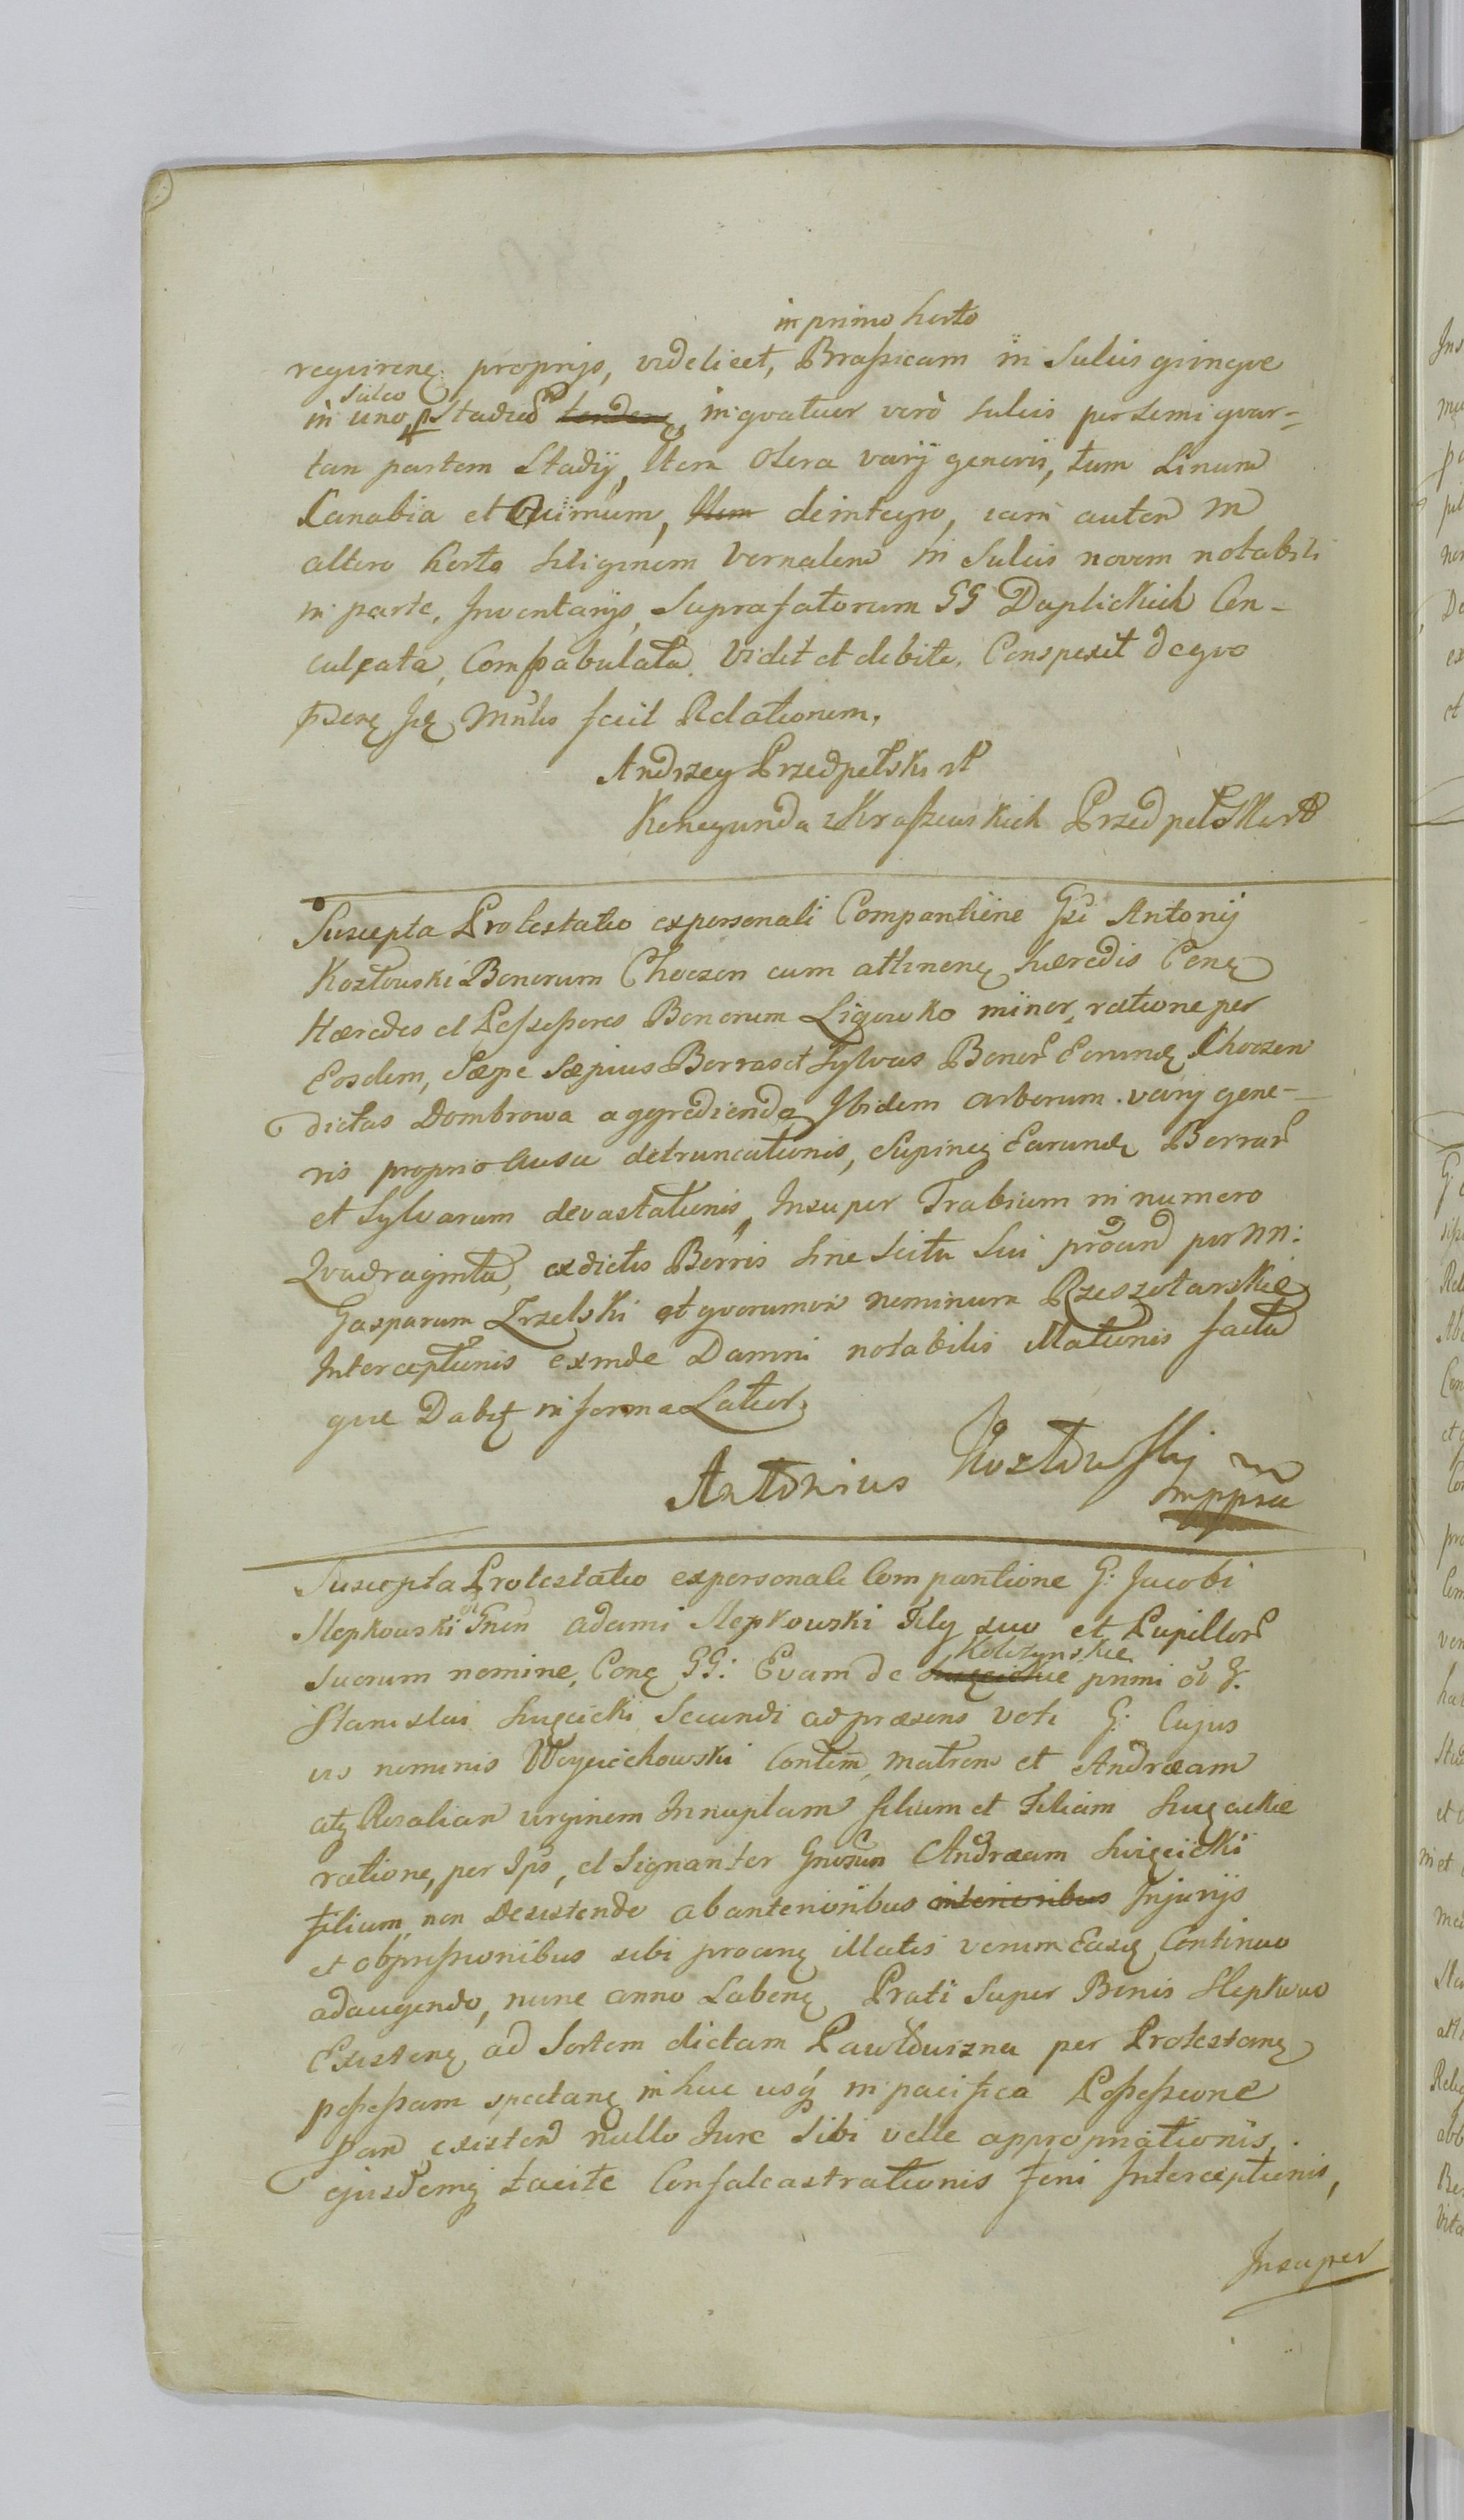 in primo horto
reqvirenę proprijs, videlicet, Braſsicam in Sulcis qvinqve
sulco
in uno, Stadio tendenę, in qvatuor verò sulcis per semi qvar-
tan partem Stadij, Item Olera varij generis, tum Linum
Canabia et Cuimum, Item deintegro, iam autem in
altero horto siliginem Vernalem in Sulcis novem notabili
in parte, Inventarijs, Suprafatorum GG Duplickich Con-
culcata, Compabulata. Vidit et debite. Conspexit deqvo
pserę se Mnlis fecit Relationem.
Andrzey Przedpełski
Kunegunda z Kraſzewskich Przedpełska
Suscepta Protestatio ex personali Comparitione Gsi Antonij
Kozłowski Bonorum Choczen cum attinenę hæredis Conę
Hæredes et Poſseſsores Bonorum Ligowko minor, ratione per
Eosdem, Sæpe Sæpius Borras et Sylvas Bonor Eorundę Choczen
dictas Dombrowa aggredienda Ibidem arborum varij gene-
ris proprio Ausu detruncationis, Supinę Earundę Borrar
et Sylvarum devastationis, Insuper Trabium in numero
Qvadraginta, ex dictis Borris sine scitu Sui proand per NN:
Gasparum Trzelski et qvorumvis nominum Rzeszotarskie
Interceptionis exinde Damni notabilis Illationis facta
que Dabit in forma Latior.
Antonius Kozłowskj
mppria
Suscepta Protestatio ex personali Comparitione G: Jacobi
Slepkowski et Gnen Adami Slepkowski Filij suo et Pupillor
Suorum nomine, Conę GG: Evam de Kolczynskie primi ov G.
Stanislai Swięcicki Secundi ad præsens Voti G: Cujus
vis nominis Woyciechowski Contem, Matrem et Andræam
atq Rosalian virginem Innuptam filium et Filiam Swięcickie
ratione, per Ips, et Signanter Gnosun Andræam Swięcicki
filium, non Desistendo ab anterioribus anterioribus Injurijs
et obpreſsionibus sibi proanę illatis verum Easę Continuo
adaugendo, nunc anno Labenę Prati Super Bonis Slepkowo
Existenę ad Sortem dictam Pawłowizna per Protestanę
poſseſsam spectanę in huc usq in pacifica Poſseſsione
suan existend nullo Iure Sibi velle appropriationis,
ejusdemq tacite Confalcastrationis Feni Interceptionis,
Insuper